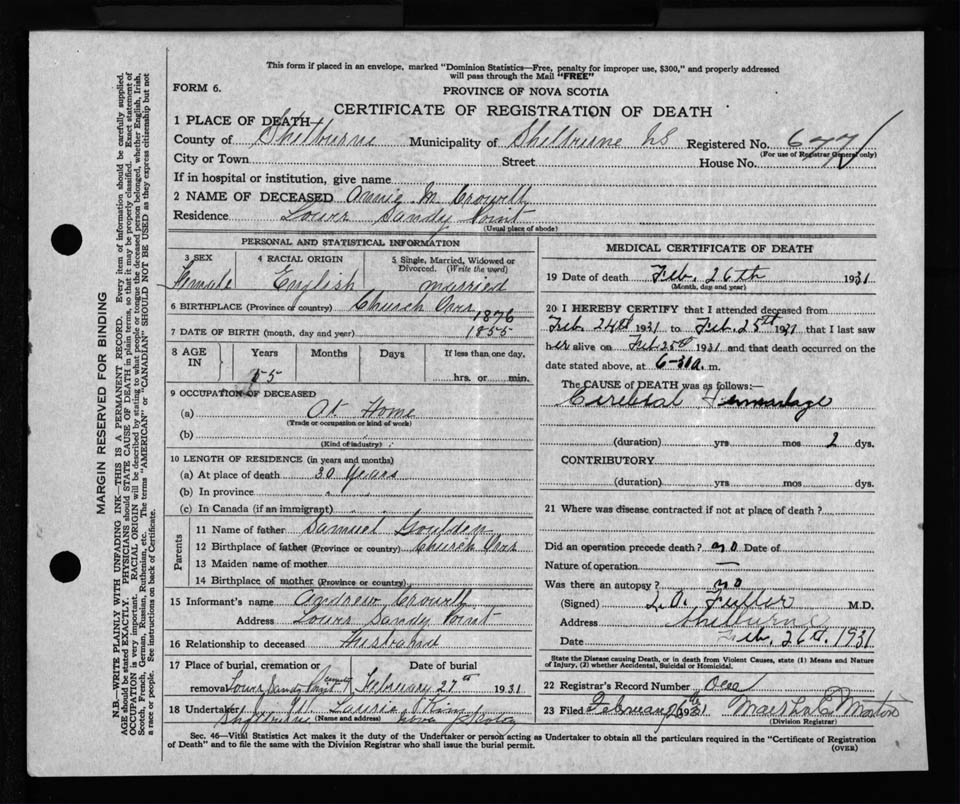 This form if placed in an envelope, marked "Dominion Statistics—Free, penalty for improper use, $300," and properly addressed
will pass through the Mail "FREE"
FORM 6.
PROVINCE OF NOVA SCOTIA
CERTIFICATE OF REGISTRATION OF DEATH
1 PLACE OF DEATH
County of Shelburne Municipality of Shelburne NS Registered No. 677
(For use of Registrar General only)
City or Town Street House No.
If in hospital or institution, give name
2 NAME OF DECEASED Annie M. Crowell
Residence Lower Sandy Point
(Usual place of abode)
PERSONAL AND STATISTICAL INFORMATION
3 SEX 4 RACIAL ORIGIN 5 Single, Married, Widowed or Divorced. (Write the word)
Female English married
6 BIRTHPLACE (Province or country) Church Over
1876
7 DATE OF BIRTH (month, day and year) 1855
8 AGE IN Years Months Days If less than one day,
55 hrs. or min.
9 OCCUPATION OF DECEASED
(a) At Home
(Trade or occupation or kind of work)
(b)
(Kind of industry)
10 LENGTH OF RESIDENCE (in years and months)
(a) At place of death 30 Years
(b) In province " "
(c) In Canada (if an immigrant)
Parents
11 Name of father Samuel Goulden
12 Birthplace of father (Province or country) Church Over
13 Maiden name of mother
14 Birthplace of mother (Province or country)
15 Informant's name Andrew Crowell
Address Lower Sandy Point
16 Relationship to deceased Husband
17 Place of burial, cremation or removal Lower Sandy Point Date of burial February 27th 1931
18 Undertaker Laurie King
Shelburne (Name and address) Nova Scotia
MEDICAL CERTIFICATE OF DEATH
19 Date of death Feb. 26th 1931
(Month, day and year)
20 I HEREBY CERTIFY that I attended deceased from
Feb 24th 1931 to Feb. 25th 1931 that I last saw
her alive on Feb 25th 1931 and that death occurred on the
date stated above, at 6-30a. m.
The CAUSE of DEATH was as follows:
Cerebral Hemorrhage
(duration) yrs mos 2 dys.
CONTRIBUTORY
(duration) yrs mos dys.
21 Where was disease contracted if not at place of death?
Did an operation precede death? no Date of
Nature of operation —
Was there an autopsy? no
(Signed) L.O. Fuller M.D.
Address Shelburne
Date Feb. 26th. 1931
State the Disease causing Death, or in death from Violent Causes, state (1) Means and Nature
of Injury, (2) whether Accidental, Suicidal or Homicidal.
22 Registrar's Record Number One
23 Filed February 1931 Morton
(Division Registrar)
Sec. 46—Vital Statistics Act makes it the duty of the Undertaker or person acting as Undertaker to obtain all the particulars required in the "Certificate of Registration
of Death" and to file the same with the Division Registrar who shall issue the burial permit.
(OVER)
MARGIN RESERVED FOR BINDING
N.B.—WRITE PLAINLY WITH UNFADING INK—THIS IS A PERMANENT RECORD. Every item of information should be carefully supplied.
AGE should be stated EXACTLY. PHYSICIANS should STATE CAUSE OF DEATH in plain terms, so that it may be properly classified. Exact statement of
OCCUPATION is very important. RACIAL ORIGIN will be described by stating to what people or tongue the deceased person belonged, whether English, Irish,
Scotch, French, German, Russian, Ruthenian, etc. The terms "AMERICAN" or "CANADIAN" SHOULD NOT BE USED as they express citizenship but not
a race or people. See instructions on back of Certificate.